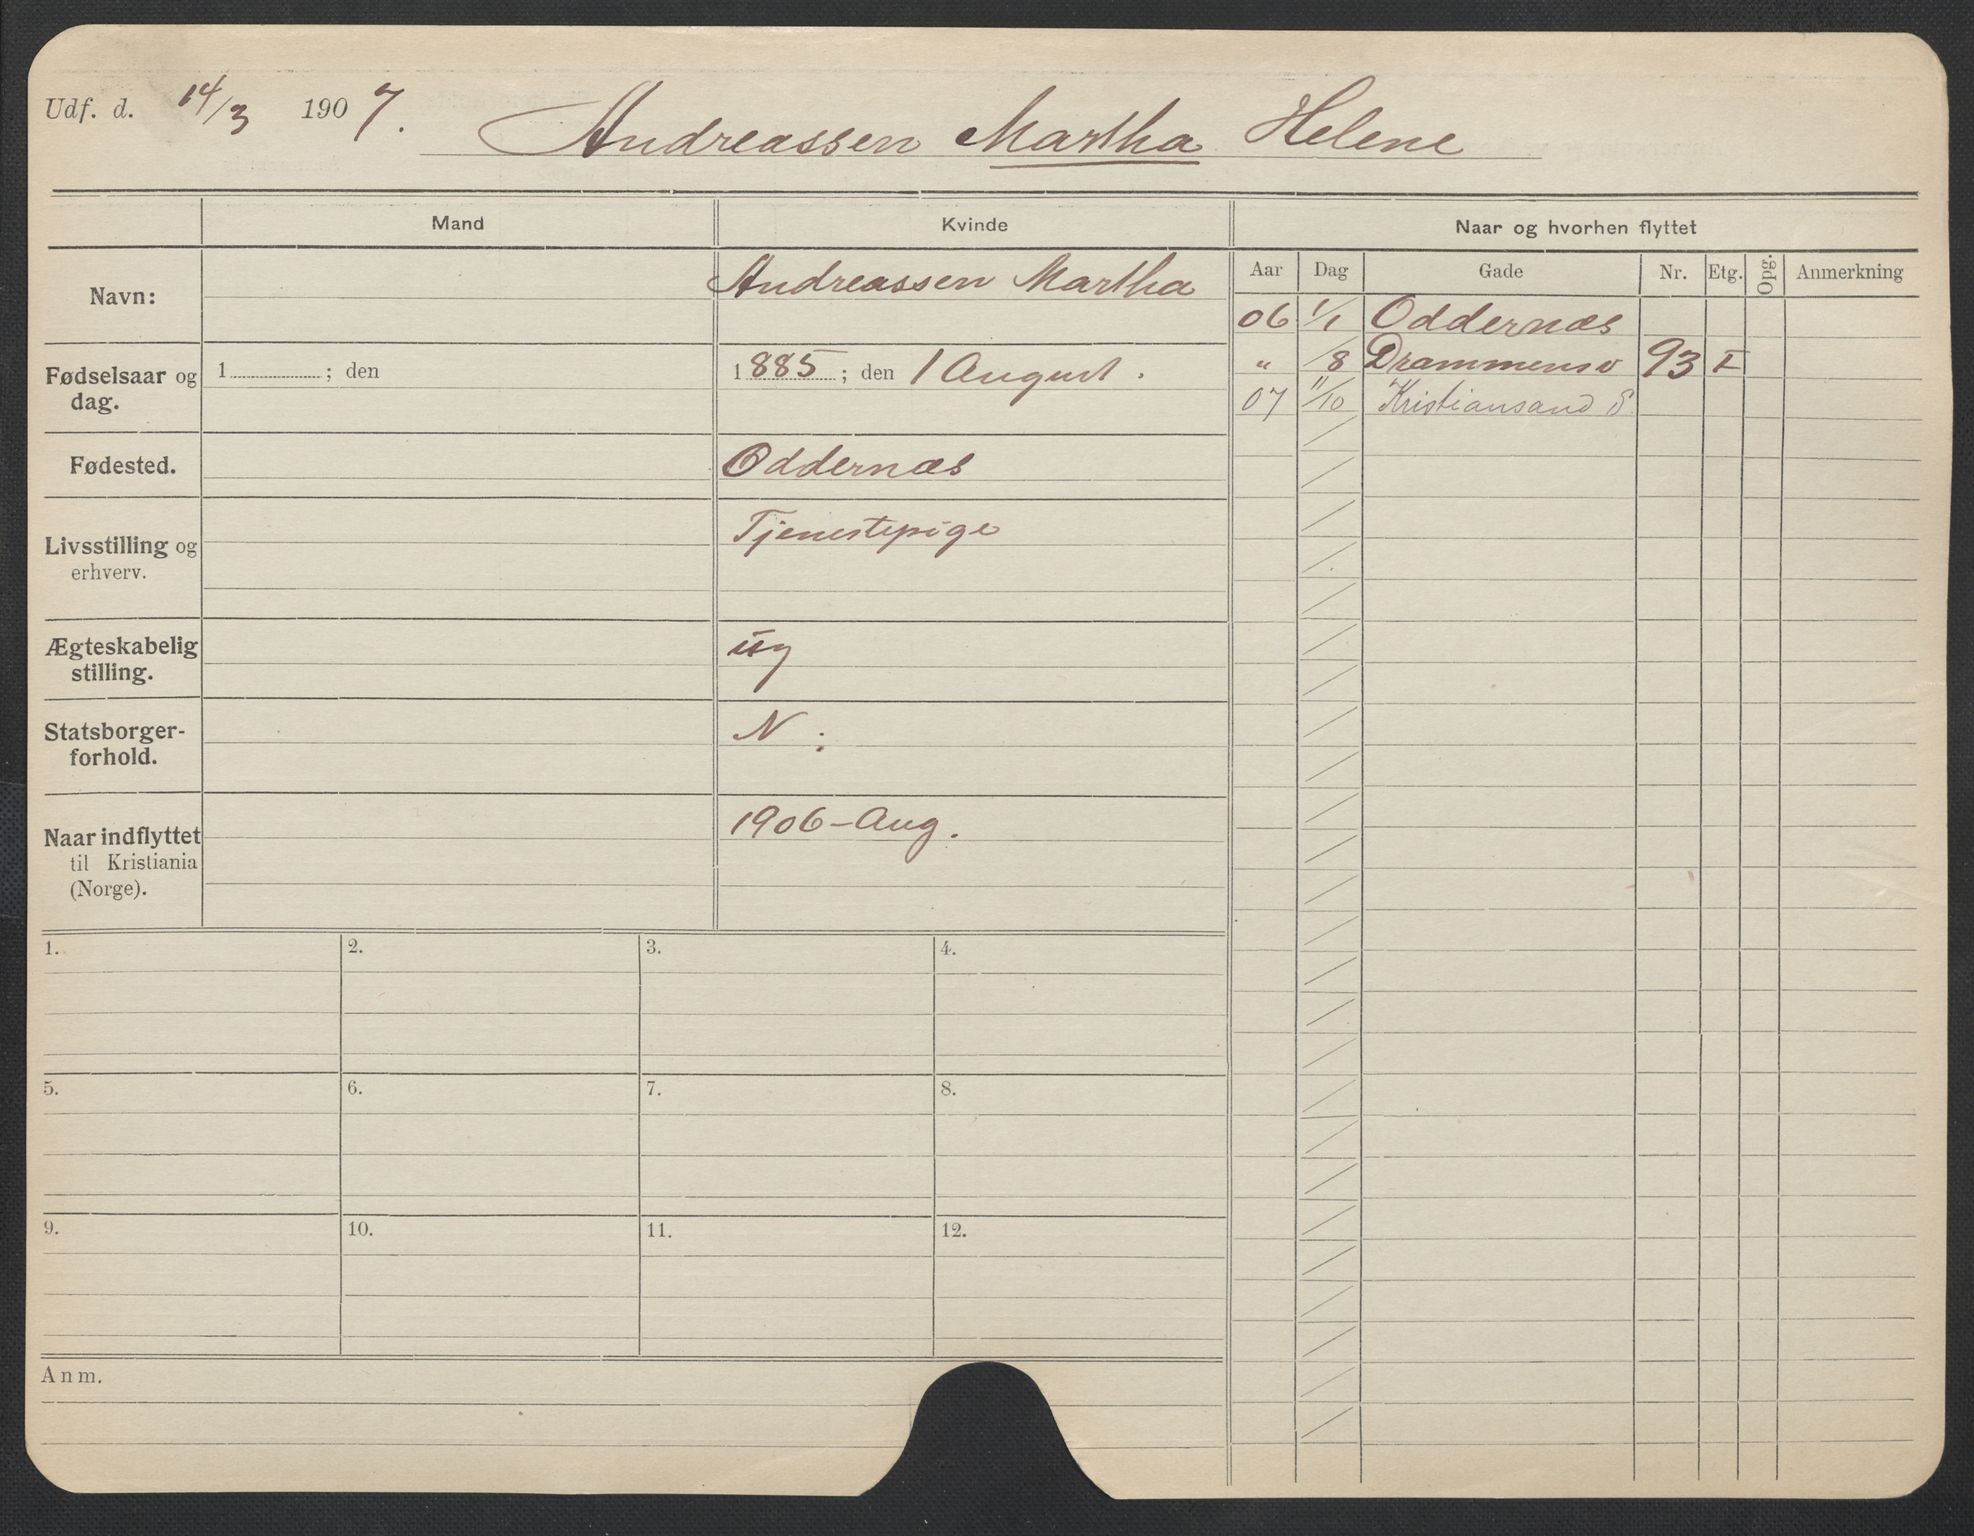 Udf. d. 14/3 1907. Andreassen Martha Helene
Mand Kvinde Naar og hvorhen flyttet
Navn: Andreassen Martha
Fødselsaar og dag. 1 ; den 1885 ; den 1 August.
Fødested. Oddernæs
Livsstilling og erhverv. Tjenestepige
Ægteskabelig stilling. ug
Statsborger-forhold. N.
Naar indflyttet til Kristiania (Norge). 1906 - Aug.
Aar Dag Gade Nr. Etg. Opg. Anmerkning
06 1/1 Oddernæs
" /8 Drammensv 93 I
07 11/10 Kristiansand S.
1. 2. 3. 4.
5. 6. 7. 8.
9. 10. 11. 12.
Anm.